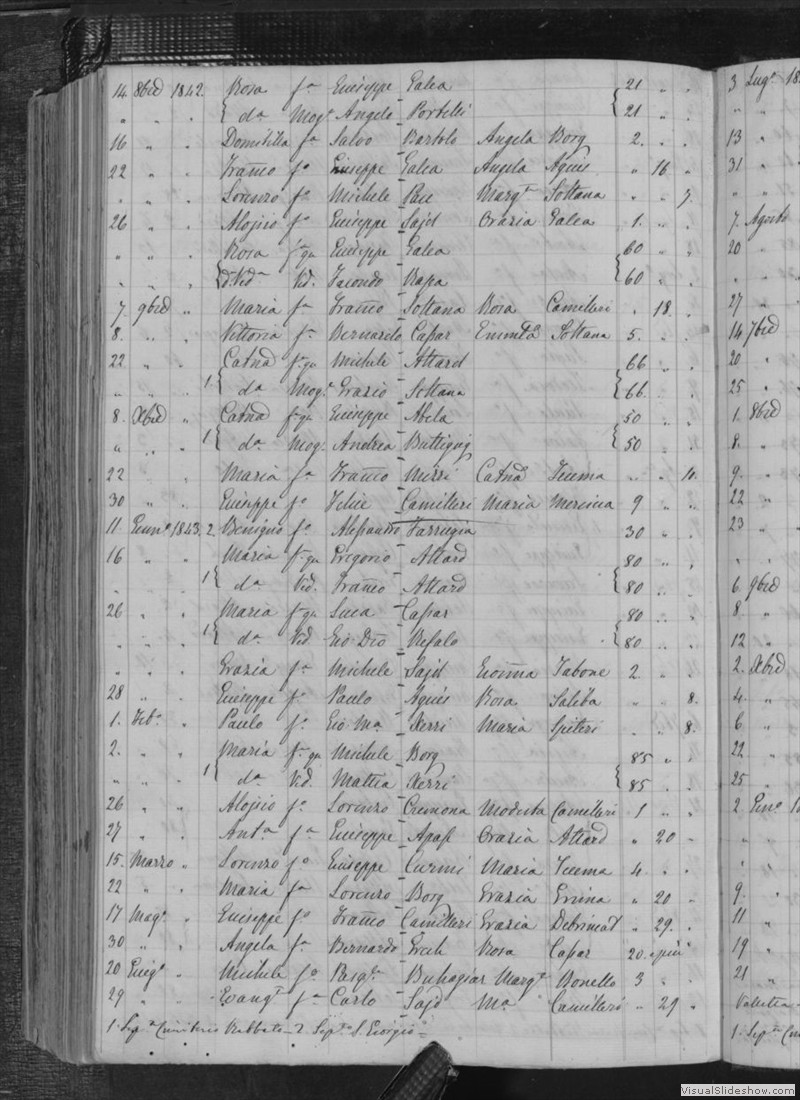 14 8bre 1842 Rosa fa Giuseppe Galea 21 " "
" " " { da Moge Angelo Portelli { 21 " "
16 " " Domitilla fa Salvo Bartolo Angela Borg 2 " "
22 " " Franco fo Giuseppe Galea Angela Agius " 16 "
" " " Lorenzo fo Michele Pace Margta Soltana " " 7
26 " " Aloisio fo Giuseppe Sajd Grazia Galea 1 " "
" " " Rosa fa qm Giuseppe Galea 60 " "
" " " { Vid. Facondo Bapa { 60 " "
7 9bre " Maria fa Franco Soltana Rosa Camilleri " 18 "
8 " " Vittoria fa Bernardo Capar Soltana 5 " "
22 " " Catna fa qm Michele Attard 66 " "
" " " 1 { da Moge Grazio Soltana { 66 " "
8 Xbre " Catna fa qm Giuseppe Abela 50 " "
" " " 1 { da Moge Andrea Buttigieg { 50 " "
22 " " Maria fa Franco Mizzi Catna Teuma " " 11
30 " " Giuseppe fo Felice Camilleri Maria Mercieca 9 " "
11 Genno 1843 2 Benigno fo Alessandro Farrugia 30 " "
16 " " Maria fa qm Gregorio Attard 80 " "
" " " 1 { da Vid. Franco Attard { 80 " "
26 " " Maria fa qm Luca Capar 80 " "
" " " 1 { da Vid Gio Dio Refalo { 80 " "
" " " Grazia fa Michele Sajd Gioanna Tabone 2 " "
28 " " Giuseppe fo Paulo Agius Rosa Saliba " " 8
1 Febo " Paulo fo Gio Ma Xerri Maria Spiteri " " 8
2 " " Maria fa qm Michele Borg 85 " "
" " " 1 { da Vid. Mattia Xerri { 85 " "
26 " " Aloisio fo Lorenzo Cremona Modesta Camilleri 1 " "
27 " " Anta fa Giuseppe Apap Grazia Attard " 20 "
15 Marzo " Lorenzo fo Giuseppe Curmi Maria Teuma 4 " "
22 " " Maria fa Lorenzo Borg Grazia " 20 "
17 Mago " Giuseppe fo Franco Camilleri Grazia Debrincat " 29 "
30 " " Angela fa Bernardo Grech Rosa Capar 20
20 Giugo " Michele fo Pasqle Buhagiar Margta Bonello 3 " "
29 " " Evangta fa Carlo Sajd Ma Camilleri " 29 "
1 Sepa Cimiterio Rabbato 2 Sepo S. Giorgio
3 Lugo 18
13 "
31 "
7 Agosto
20 "
27 "
14 7bre
20 "
25 "
1 8bre
8 "
9 "
22 "
23 "
6 9bre
8 "
12 "
2 Xbre
4 "
6 "
22 "
25 "
2 Geno 1
9 "
11 "
19 "
21 "
Valletta
1 Sepa Cim
VisualSlideshow.com